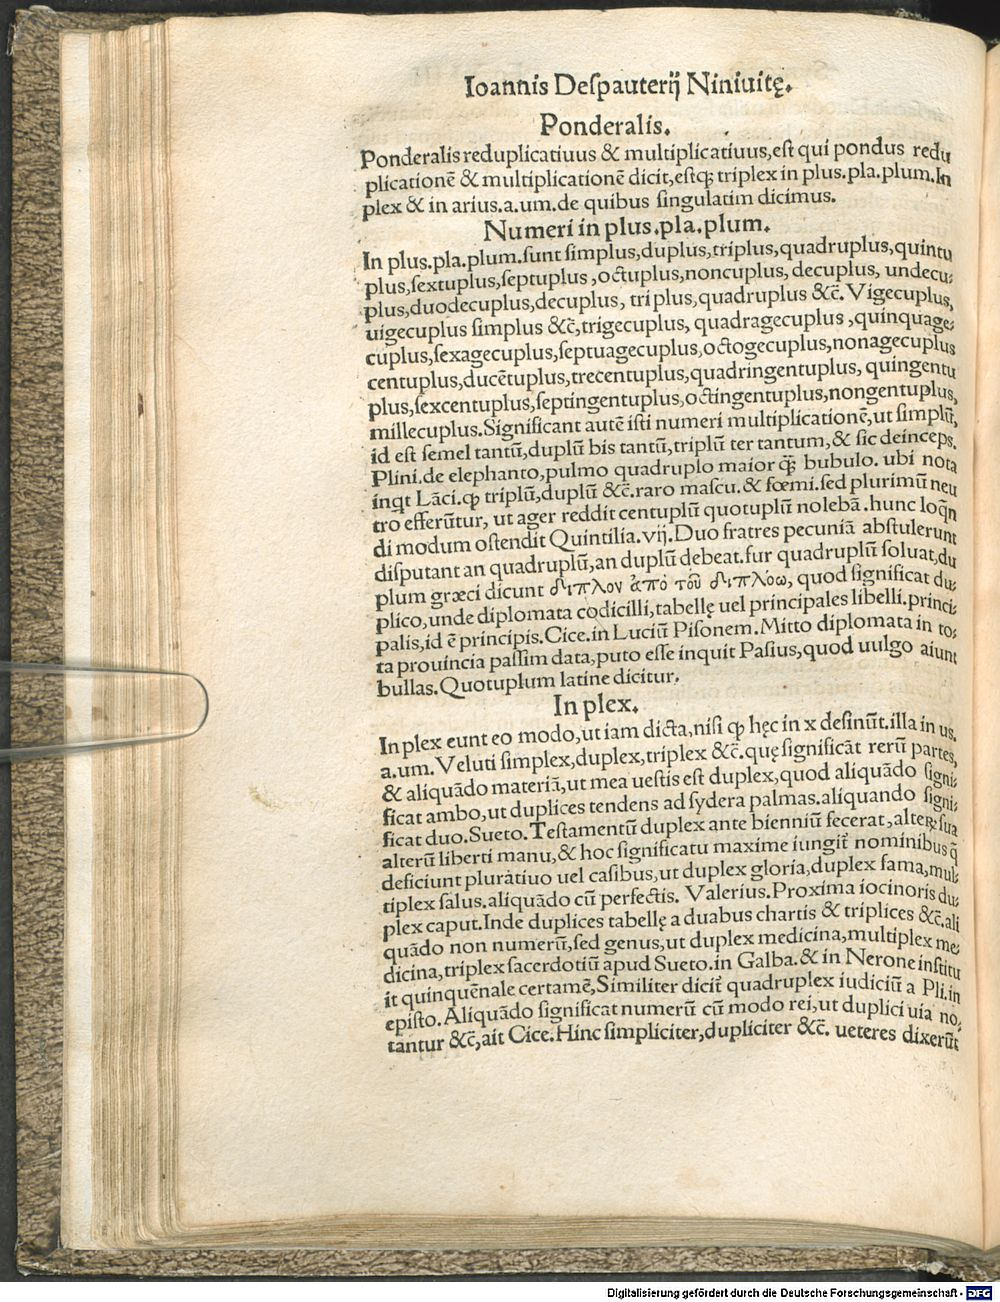 Ioannis Deſpauterij Niniuitę.
Ponderalis.
Ponderalis reduplicatiuus & multiplicatiuus,eſt qui pondus redu
plicationē & multiplicationē dicit,eſtqȝ triplex in plus.pla.plum.In
plex & in arius.a.um.de quibus ſingulatim dicimus.
Numeri in plus.pla.plum.
In plus.pla.plum.ſunt ſimplus,duplus,triplus,quadruplus,quintu
plus,ſextuplus,ſeptuplus,octuplus,noncuplus, decuplus, undecu⸗
plus,duodecuplus,decuplus, triplus,quadruplus &c̄. Vigecuplus,
uigecuplus ſimplus &c̄,trigecuplus, quadragecuplus ,quinquage⸗
cuplus,ſexagecuplus,ſeptuagecuplus,octogecuplus,nonagecuplus
centuplus,ducētuplus,trecentuplus,quadringentuplus, quingentu
plus,ſexcentuplus,ſeptingentuplus,octingentuplus,nongentuplus,
millecuplus.Significant autē iſti numeri multiplicationē,ut ſimplū,
id eſt ſemel tantū,duplū bis tantū,triplū ter tantum,& ſic deinceps.
Plini.de elephanto,pulmo quadruplo maior q̄ȝ bubulo. ubi nota
inqt Lāci.qꝫ triplū,duplū &c̄.raro maſcu.& fœmi.ſed plurimū neu
tro efferūtur, ut ager reddit centuplū quotuplū nolebā.hunc loq̄n
di modum oſtendit Quintilia.vij.Duo fratres pecuniā abſtulerunt
diſputant an quadruplū,an duplū debeat.fur quadruplū ſoluat,du
plum græci dicunt διπλον ἀπὸ τοῦ διπλοω, quod ſignificat du⸗
plico,unde diplomata codicilli,tabellę uel principales libelli.princi⸗
palis,id ē principis.Cice.in Luciū Piſonem.Mitto diplomata in to⸗
ta prouincia paſſim data,puto eſſe inquit Paſius,quod uulgo aiunt
bullas.Quotuplum latine dicitur.
In plex.
In plex eunt eo modo,ut iam dicta,niſi qꝫ hęc in x deſinūt.illa in us.
a.um. Veluti ſimplex,duplex,triplex &c̄.quę ſignificāt rerū partes,
& aliquādo materiā,ut mea ueſtis eſt duplex,quod aliquādo ſigni⸗
ficat ambo,ut duplices tendens ad ſydera palmas.aliquando ſigni⸗
ficat duo.Sueto.Teſtamentū duplex ante bienniū fecerat,alteꝝ ſua
alterū liberti manu,& hoc ſignificatu maxime iungit̄ nominibus q̄
deficiunt pluratiuo uel caſibus,ut duplex gloria,duplex fama,mul⸗
tiplex ſalus.aliquādo cū perfectis. Valerius.Proxima iocinoris du⸗
plex caput.Inde duplices tabellę a duabus chartis & triplices &c̄.ali
quādo non numerū,ſed genus,ut duplex medicina,multiplex me⸗
dicina,triplex ſacerdotiū apud Sueto.in Galba.& in Nerone inſtitu
it quinquēnale certamē,Similiter dicit̄ quadruplex iudiciū a Pli.in
epiſto.Aliquādo ſignificat numerū cū modo rei,ut duplici uia no⸗
tantur &c̄,ait Cice.Hinc ſimpliciter,dupliciter &c̄. ueteres dixerūt
Digitalisierung gefördert durch die Deutsche Forschungsgemeinschaft - DFG